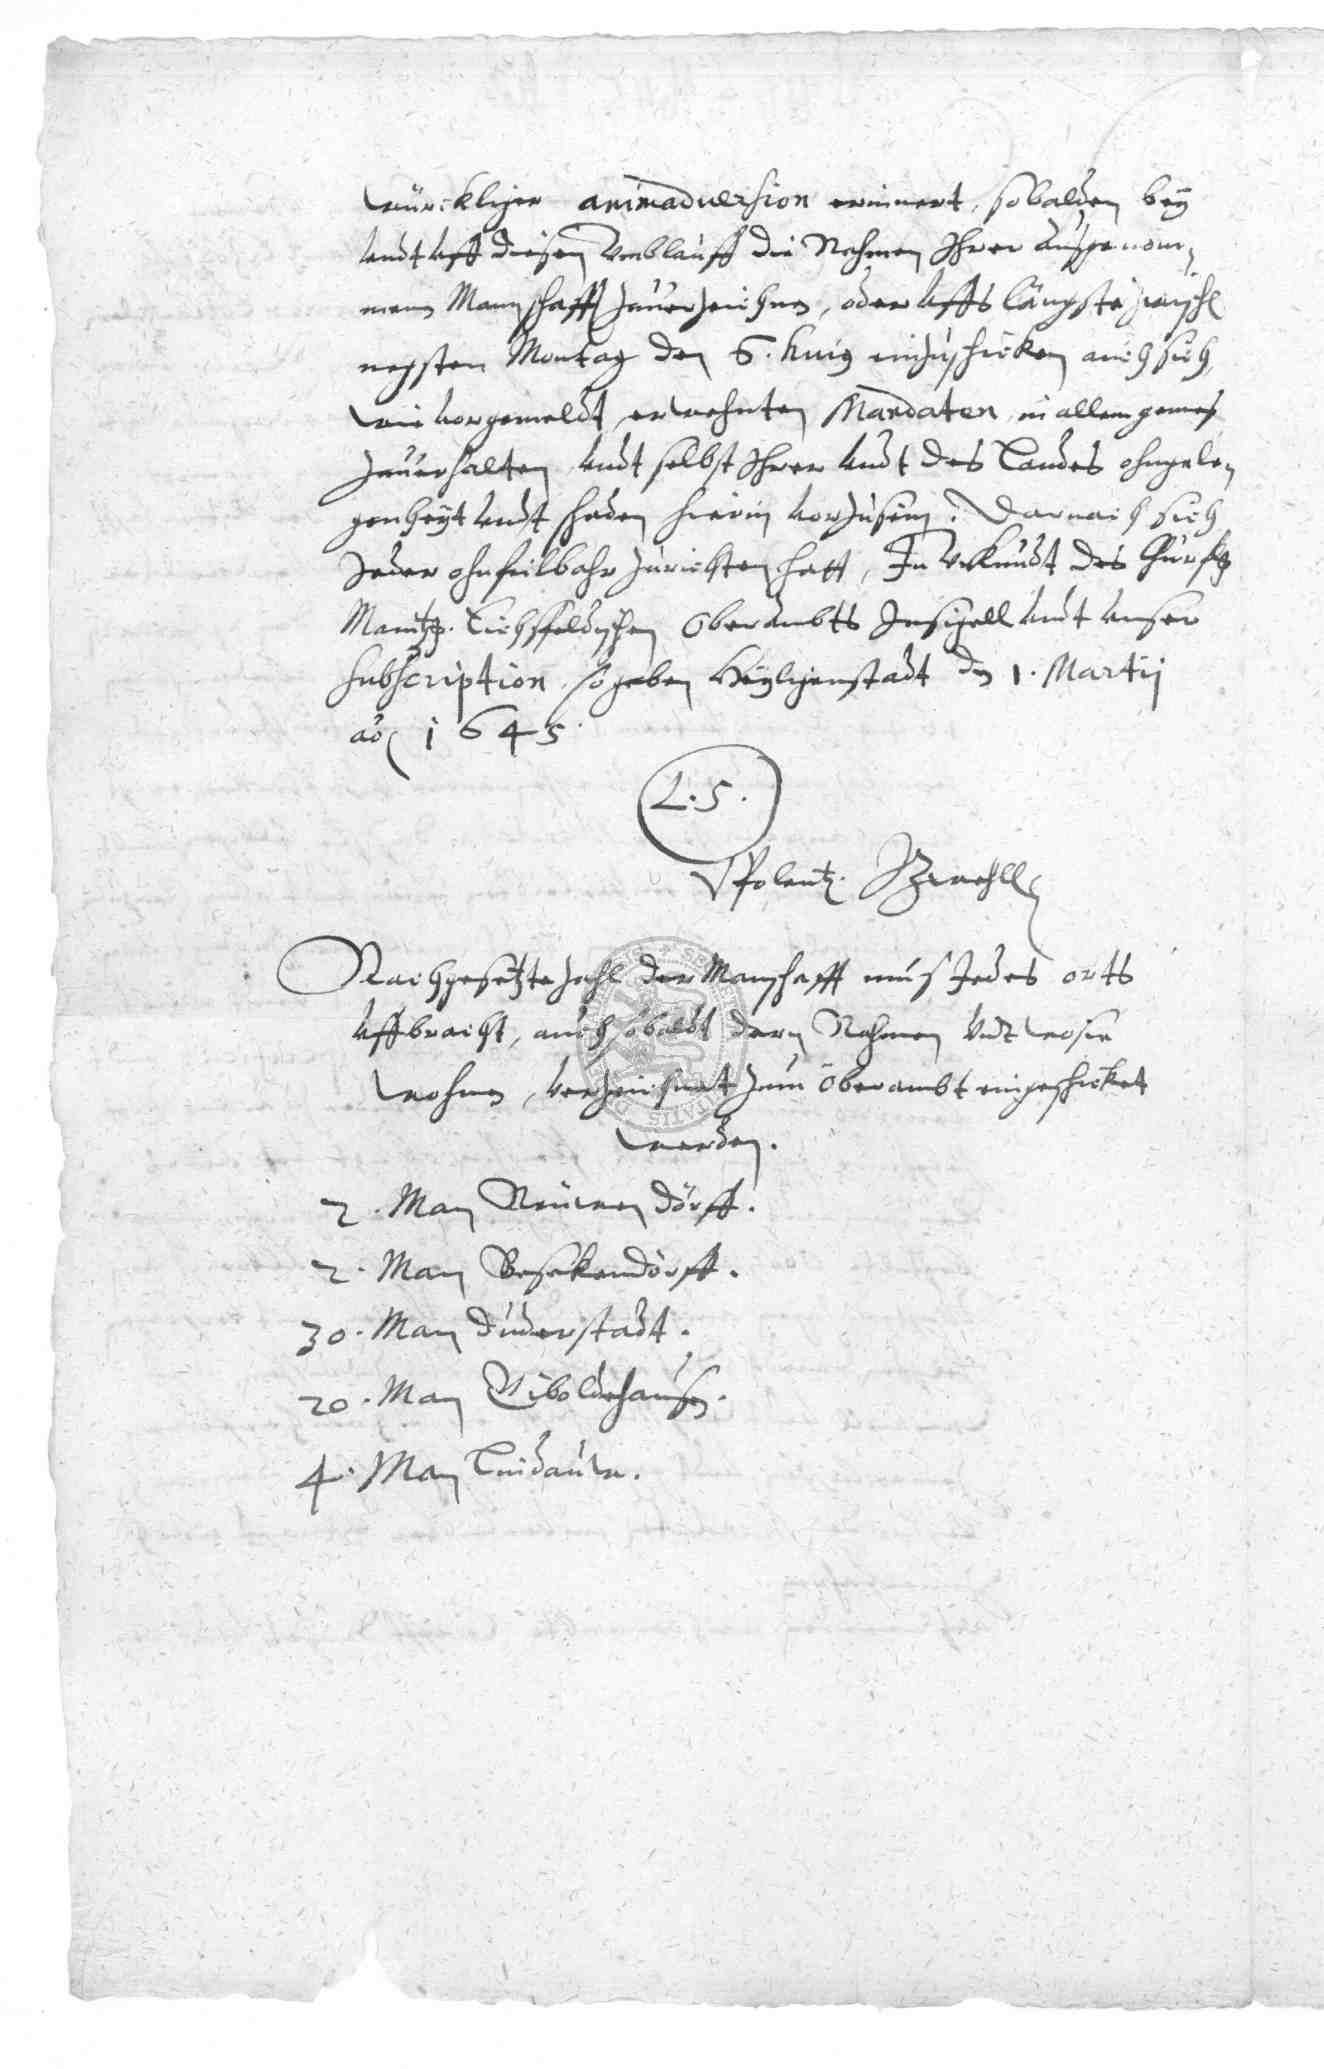 würcklicher animadversion erinnert, sobalden bey
undt uff diesen Umblauff die Nahmen Ihrer auffgenom¬
menen Manschafft zuverzeichnen, oder uffs längste zwischen
negsten Montag den 6. huius einzuschicken auch sich,
wie vorgemeldt, erwehnten Mandaten in allem gemeß
zuverhalten, undt selbst Ihrer undt des Landes ohngele¬
genheyt undt schaden hierin vorzusein. Darnach sich
Jeder ohnfeilbahr zurichten hatt, In Urkundt des Churfl.
Maintz. Eichsfeldischen Oberambts Insigell undt unser
subscription, so geben Heyligenstadt den 1. Martij
ao 1645.
L. S.
Nachgesetzte Zahl der Manschafft muß Jedes orts
uffbracht, auch sobaldt deren Nahmen undt wo sie
wohnen, verzeichnet zum Oberambt eingeschicket
werden.
2. Man Neuwendorff.
2. Man Besekendorff.
30. Man Duderstadt.
20. Man Giboldehausen.
4. Man Lindauw.